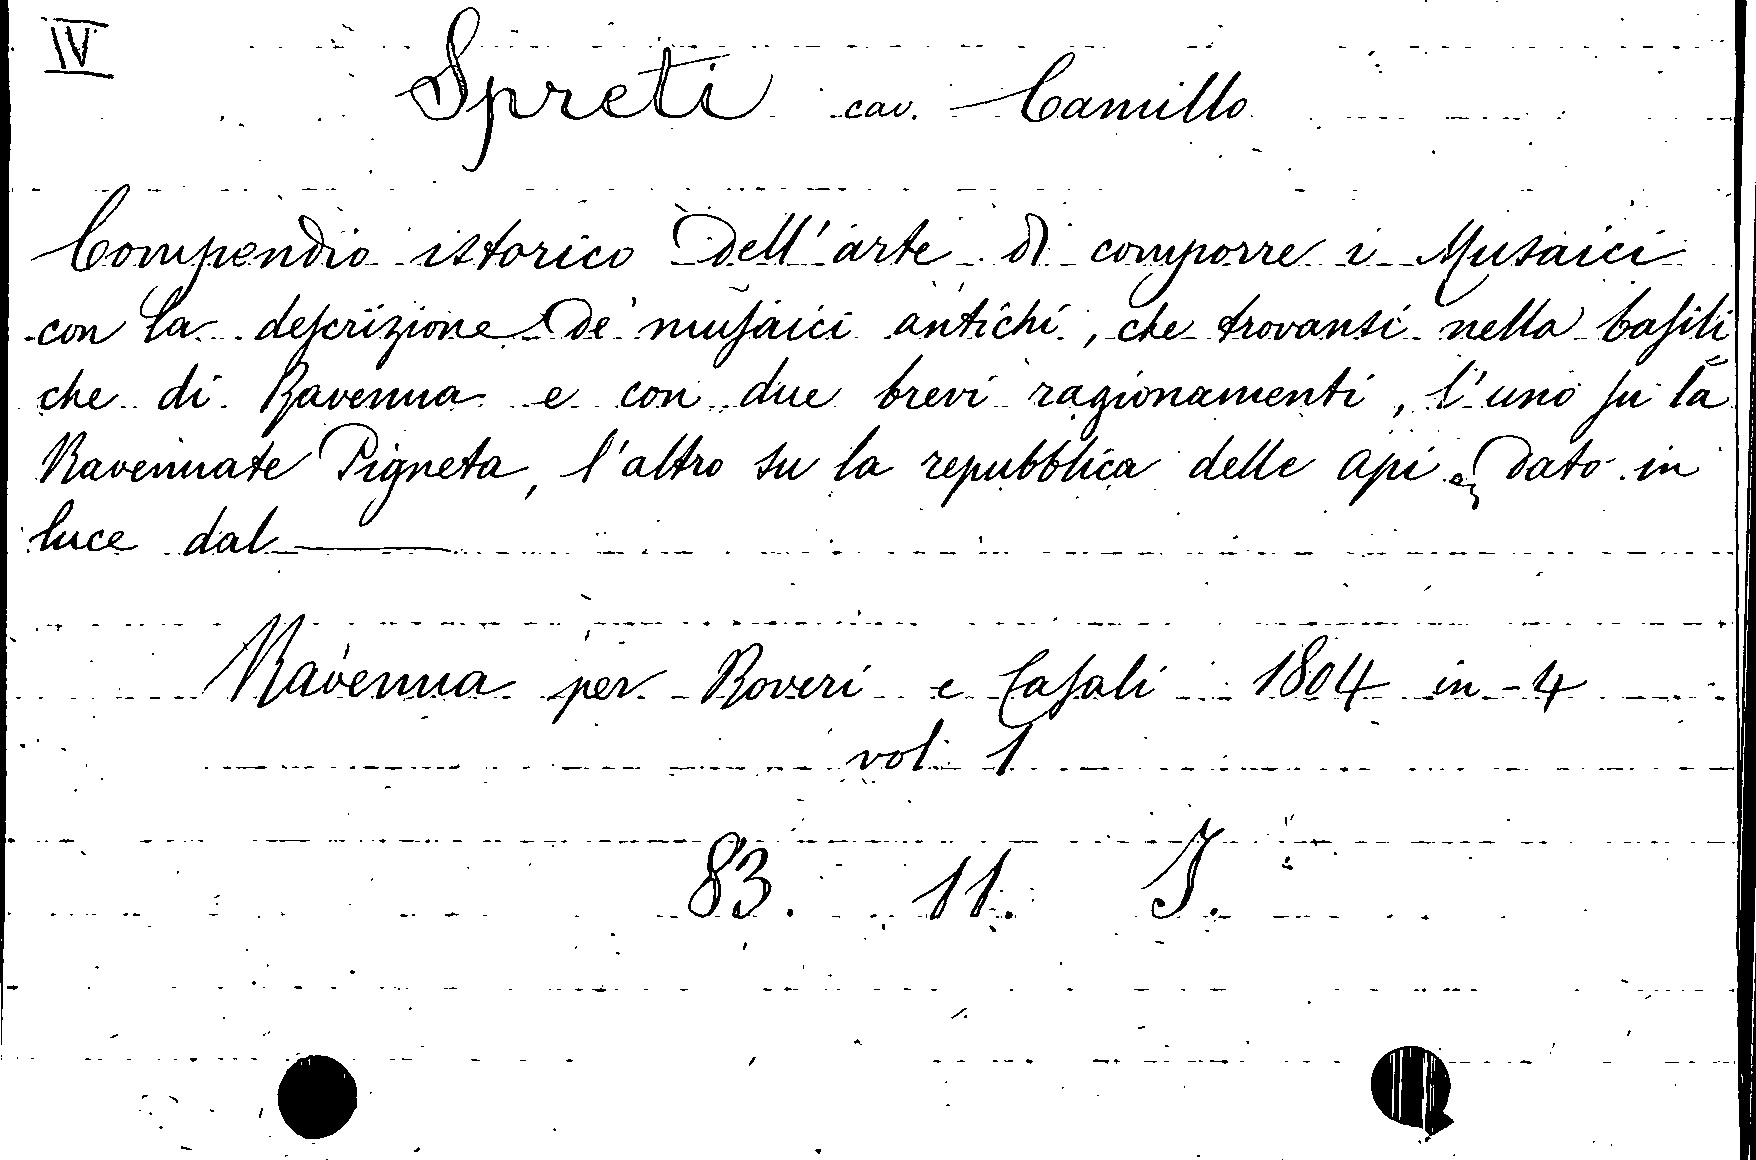 IV
Spreti cav. Camillo
Compendio istorico dell'arte di comporre i Musaici
con la descrizione de' musaici antichi, che trovansi nella basili
che di Ravenna e con due brevi ragionamenti, l'uno su la
Ravennate Pigneta, l'altro su la repubblica delle api dato in
luce dal
Ravenna per Roveri e Casali 1804 in-4
vol. 1
83. 11. I.